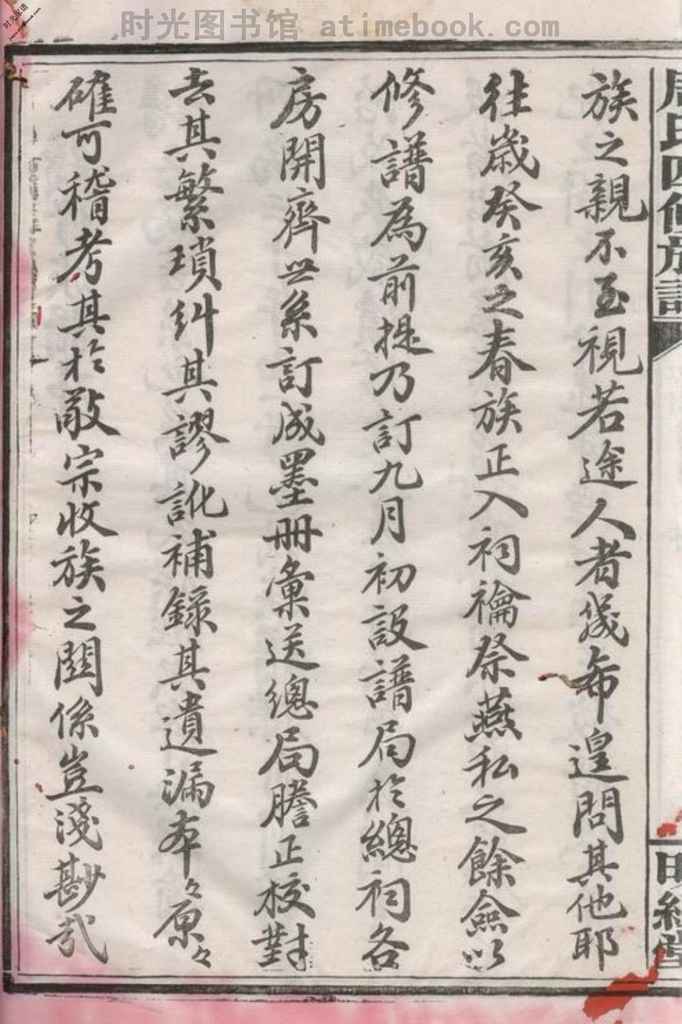 时光图书馆 atimebook.com
周氏四修族譜
明經堂
族之親不至視若途人者幾希遑問其他耶
往歲癸亥之春族正入祠禴祭燕私之餘僉以
修譜為前提乃訂九月初設譜局於總祠各
房開齊世系訂成墨冊彙送總局謄正校對
去其繁瑣糾其謬訛補錄其遺漏本々原々
確可稽考其於敬宗收族之關係豈淺尠哉